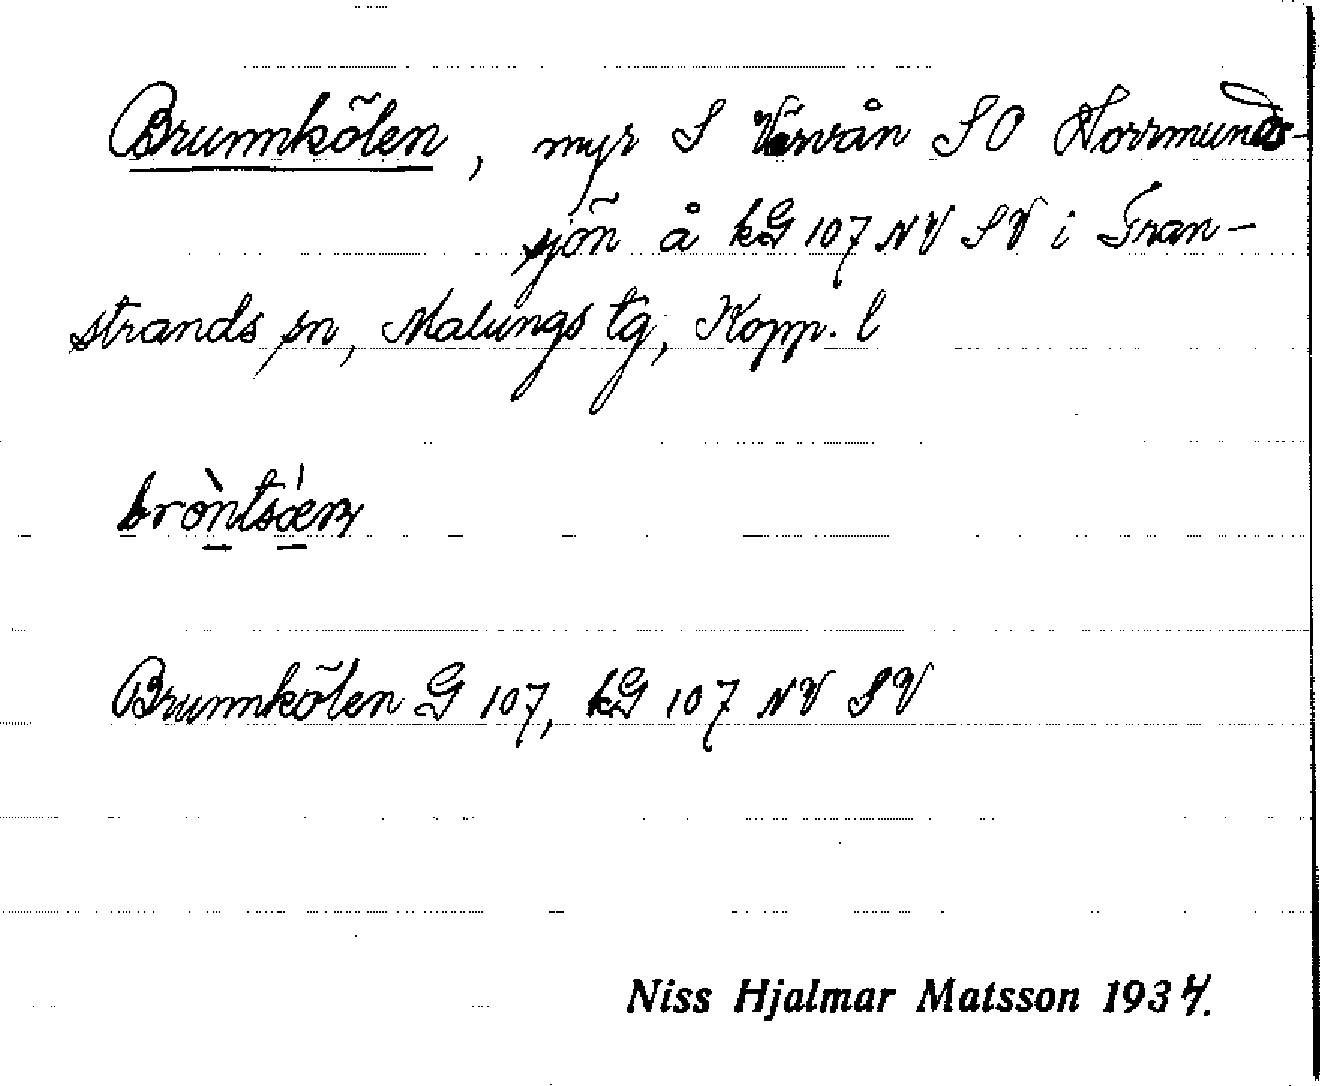 Brunnkölen, myr S Värvån SO Horrmunds-
sjön å kG 107 NV SV i Tran-
strands sn, Malungs tg, Kopp. l
bròntsœ́ṇ
Brunnkölen G 107, kG 107 NV SV
Niss Hjalmar Matsson 1934.